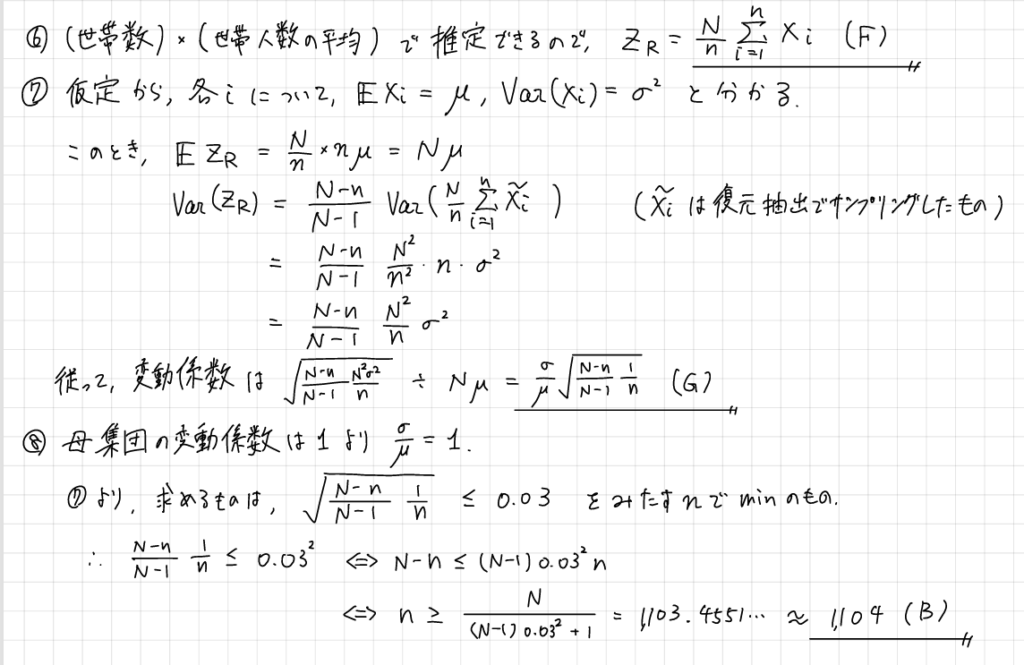 ⑥ (世帯数) × (世帯人数の平均) で推定できるので, Z_R = N/n Σ_{i=1}^{n} X_i (F)
⑦ 仮定から, 各 i について, E X_i = μ, Var(X_i) = σ² と分かる.
このとき, E Z_R = N/n × nμ = Nμ
Var(Z_R) = (N-n)/(N-1) Var(N/n Σ_{i=1}^{n} X̃_i) (X̃_i は復元抽出でサンプリングしたもの)
= (N-n)/(N-1) N²/n² · n · σ²
= (N-n)/(N-1) N²/n σ²
従って, 変動係数は √((N-n)/(N-1) N²σ²/n) ÷ Nμ = σ/μ √((N-n)/(N-1) 1/n) (G)
⑧ 母集団の変動係数は 1 より σ/μ = 1.
⑦より, 求めるものは, √((N-n)/(N-1) 1/n) ≤ 0.03 をみたす n で min のもの.
∴ (N-n)/(N-1) 1/n ≤ 0.03² ⇔ N-n ≤ (N-1) 0.03² n
⇔ n ≥ N/((N-1) 0.03² + 1) = 1,103.4551… ≈ 1,104 (B)